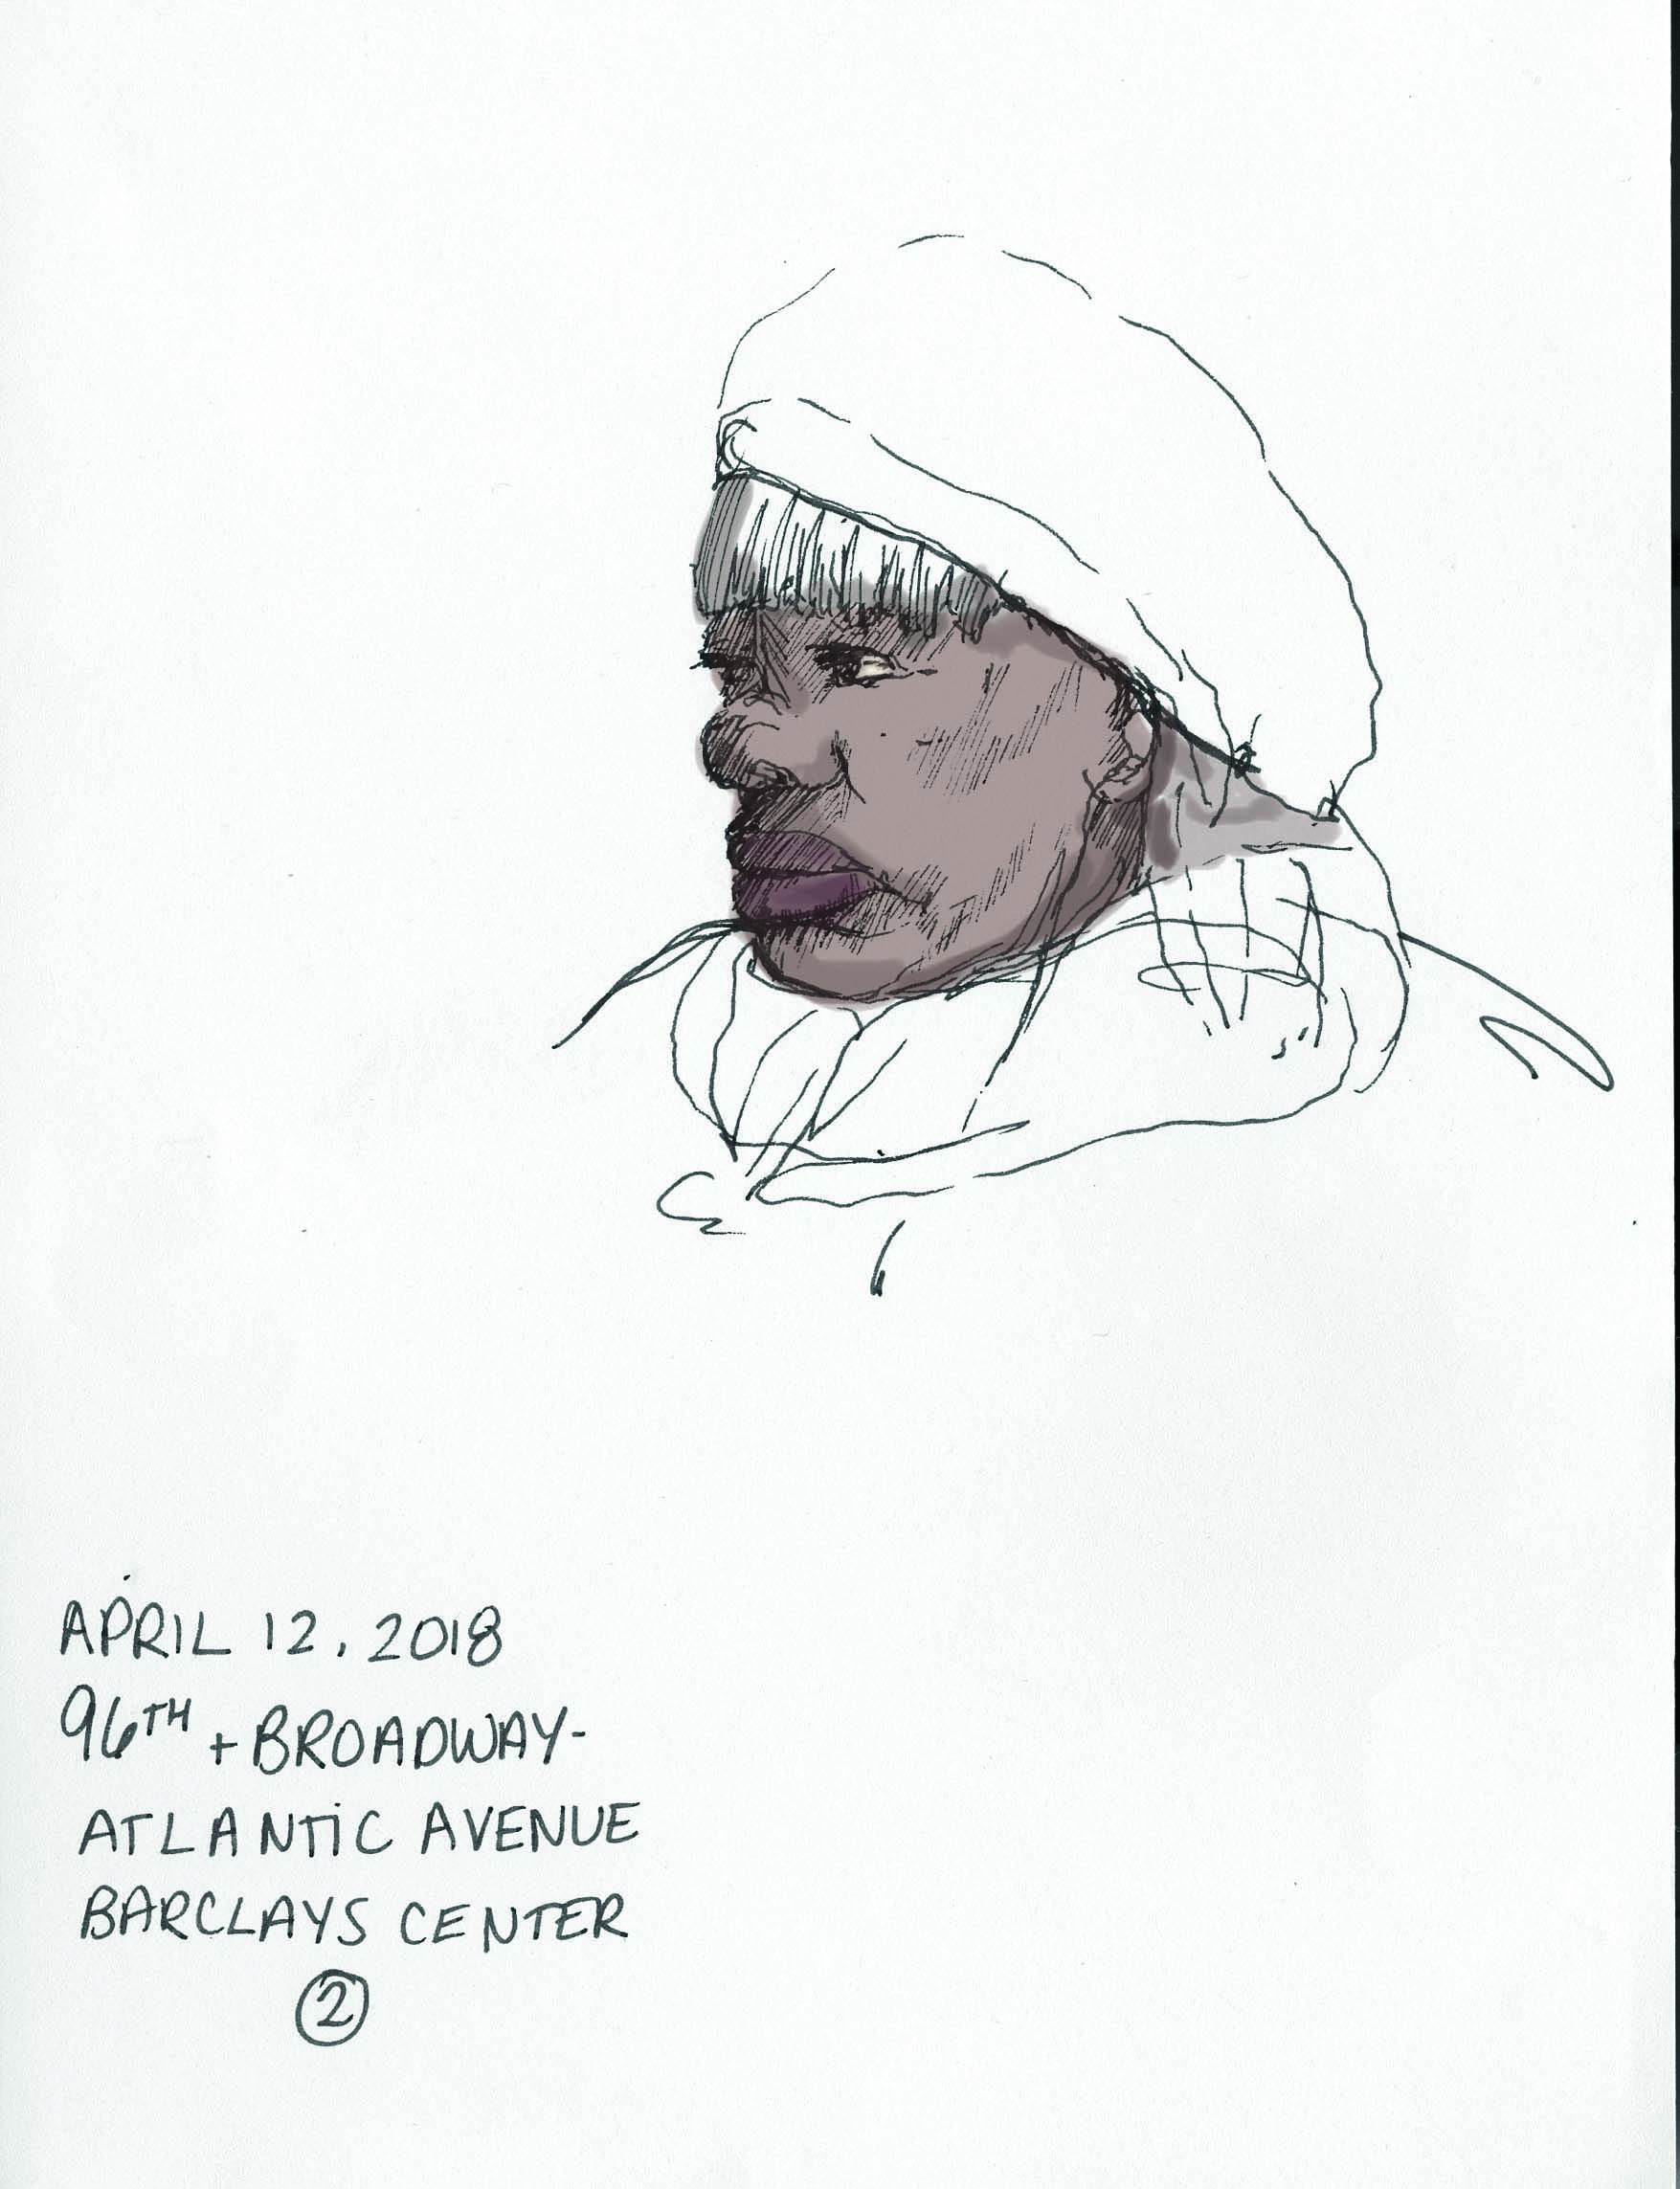 APRIL 12, 2018
96TH + BROADWAY-
ATLANTIC AVENUE
BARCLAYS CENTER
2